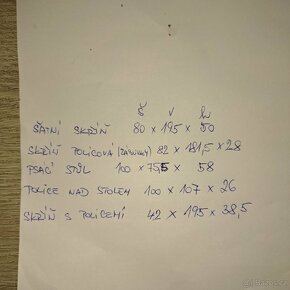 Š v hl
ŠATNÍ SKŘÍŇ 80 x 195 x 50
SKŘÍŇ POLICOVÁ (ZÁSUVKY) 82 x 181,5 x 28
PSACÍ STŮL 100 x 75,5 x 58
POLICE NAD STOLEM 100 x 107 x 26
SKŘÍŇ S POLICEMI 42 x 195 x 38,5